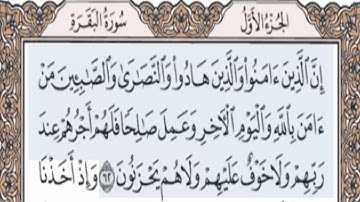 سُورَةُ البَقَرَةِ الجُزْءُ الأَوَّلُ
إِنَّ ٱلَّذِينَ ءَامَنُوا۟ وَٱلَّذِينَ هَادُوا۟ وَٱلنَّصَٰرَىٰ وَٱلصَّٰبِـِٔينَ مَنْ
ءَامَنَ بِٱللَّهِ وَٱلْيَوْمِ ٱلْءَاخِرِ وَعَمِلَ صَٰلِحًا فَلَهُمْ أَجْرُهُمْ عِندَ
رَبِّهِمْ وَلَا خَوْفٌ عَلَيْهِمْ وَلَا هُمْ يَحْزَنُونَ ٦٢ وَإِذْ أَخَذْنَا